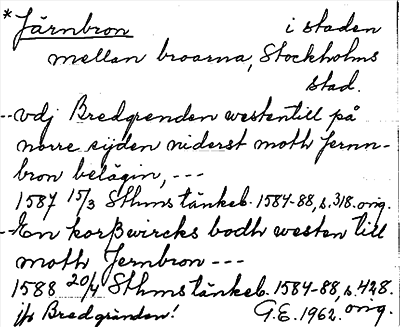 * Järnbron i staden
mellan broarna, Stockholms
stad.
--vdj Bredgrenden westentill på
norre sijden niderst moth Jernn-
bron belägin, ---
1587 15/3 Sthms tänkeb. 1584-88, s. 318. orig.
-En korßwircks bodh westen till
moth Jernbron ---
1588 20/4 Sthms tänkeb. 1584-88, s. 428.
jfr Bredgränden! G.E. 1962. orig.